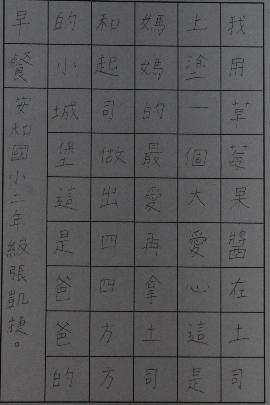 我用草莓果醬在土司
上塗一個大愛心這是
媽媽的最愛再拿土司
和起司做出四四方方
的小城堡這是爸爸的
早餐 安和國小二年級張凱捷。